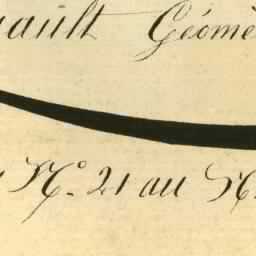 ault Géomè
Nº 21 au N